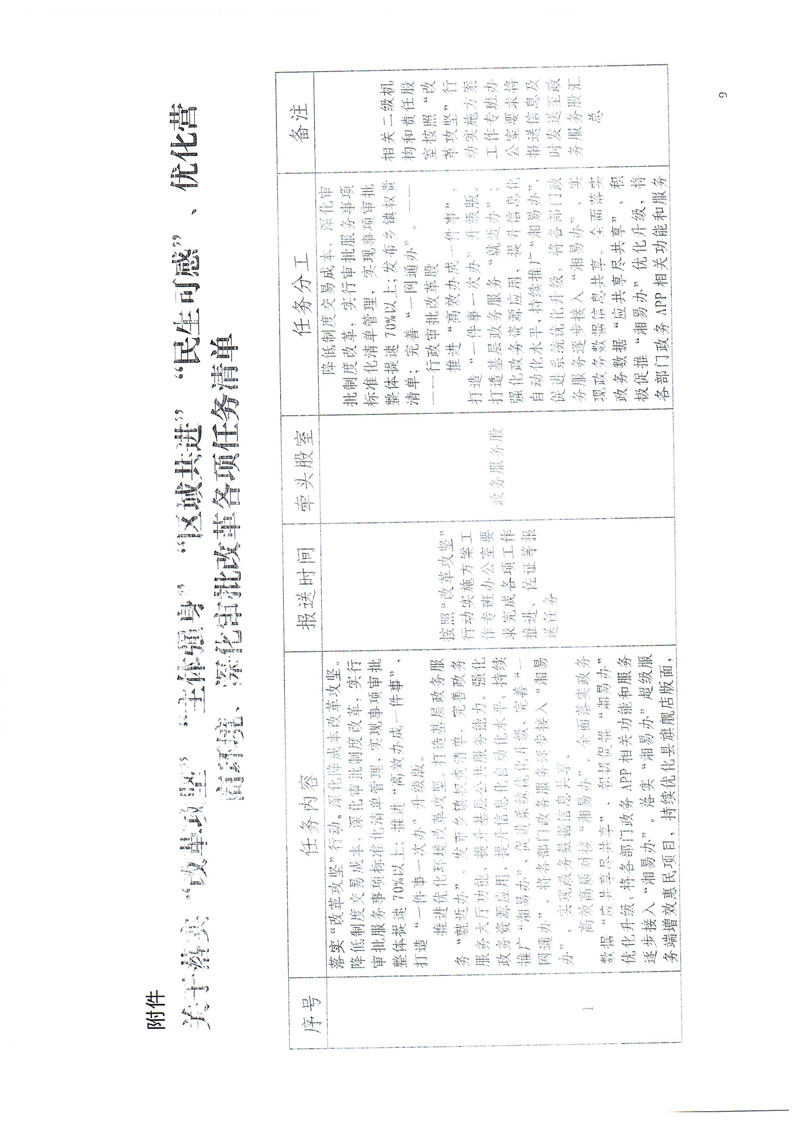 附件
关于落实“改革攻坚”“主体强身”“区域共进”“民生可感”、优化营
商环境、深化审批改革各项任务清单
序号
任务内容
报送时间
牵头股室
任务分工
备注
1
落实“改革攻坚”行动。深化降成本改革攻坚。
降低制度交易成本，深化审批制度改革，实行
审批服务事项标准化清单管理，实现事项审批
整体提速70%以上；推进“高效办成一件事”、
打造“一件事一次办”升级版。
推进优化环境改革攻坚。打造基层政务服
务“就近办”，发布乡镇权责清单，完善政务
服务大厅功能，提升基层公共服务能力。强化
政务资源应用，提升信息化自动化水平，持续
推广“湘易办”，促进系统优化升级、完善“一
网通办”、将各部门政务服务逐步接入“湘易
办”，实现政务数据信息共享。
高效高质对接“湘易办”。全面落实政务
数据“应共享尽共享”、积极促推“湘易办”
优化升级，将各部门政务APP相关功能和服务
逐步接入“湘易办”。落实“湘易办”超级服
务端增效惠民项目，持续优化县旗舰店版面，
按照“改革攻坚”
行动实施方案工
作专班办公室要
求完成各项工作
推进、佐证等报
送任务
政务服务股
降低制度交易成本，深化审
批制度改革，实行审批服务事项
标准化清单管理，实现事项审批
整体提速70%以上；发布乡镇权责
清单；完善“一网通办”。——
——行政审批改革股
推进“高效办成一件事”，
打造“一件事一次办”升级版。
打造基层政务服务“就近办”；
强化政务资源应用，提升信息化
自动化水平，持续推广“湘易办”，
促进系统优化升级，将各部门政
务服务逐步接入“湘易办”、实
现政务数据信息共享，全面落实
政务数据“应共享尽共享”、积
极促推“湘易办”优化升级，将
各部门政务APP相关功能和服务
相关二级机
构和责任股
室按照“改
革攻坚”行
动实施方案
工作专班办
公室要求将
报送信息及
时发送至政
务服务股汇
总
9